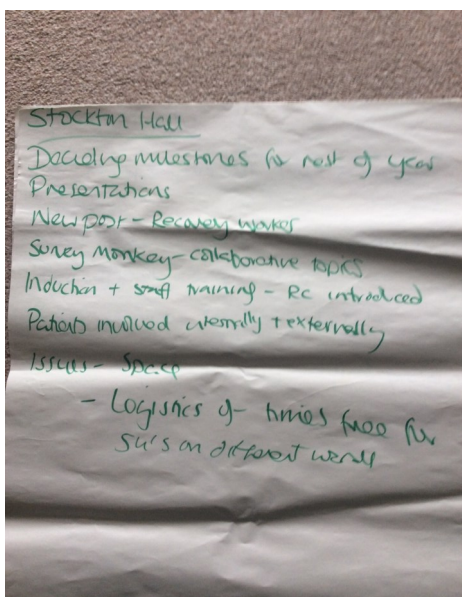 Stockton Hall
Deciding milestones for rest of year
Presentations
New post - Recovery worker
Survey monkey - collaborative topics
Induction + staff training - RC introduced
Patients involved internally + externally
Issues - Space
- Logistics of times free for
SU's on different wards